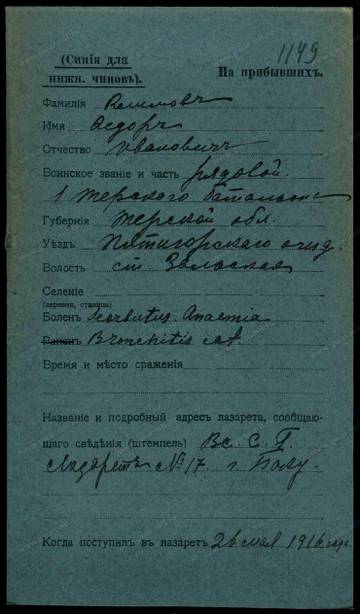 1149
(Синія для
нижн. чиновъ).
На прибывшихъ.
Фамилія
Имя Ѳедоръ
Отчество Ивановичъ
Воинское званіе и часть рядовой.
1 Терского баталіона
Губернія Терской обл.
Уѣздъ Пятигорскаго отд.
Волость ст. Зольская
Селеніе
(деревня, станица)
Боленъ Scorbutus. Anaemia
Раненъ Bronchitis cat.
Время и мѣсто сраженія
Названіе и подробный адресъ лазарета, сообщаю-
щаго свѣдѣнія (штемпель) Вс. С. Г.
Лазаретъ № 17. г. Баку.
Когда поступилъ въ лазаретъ 26 мая 1916 года